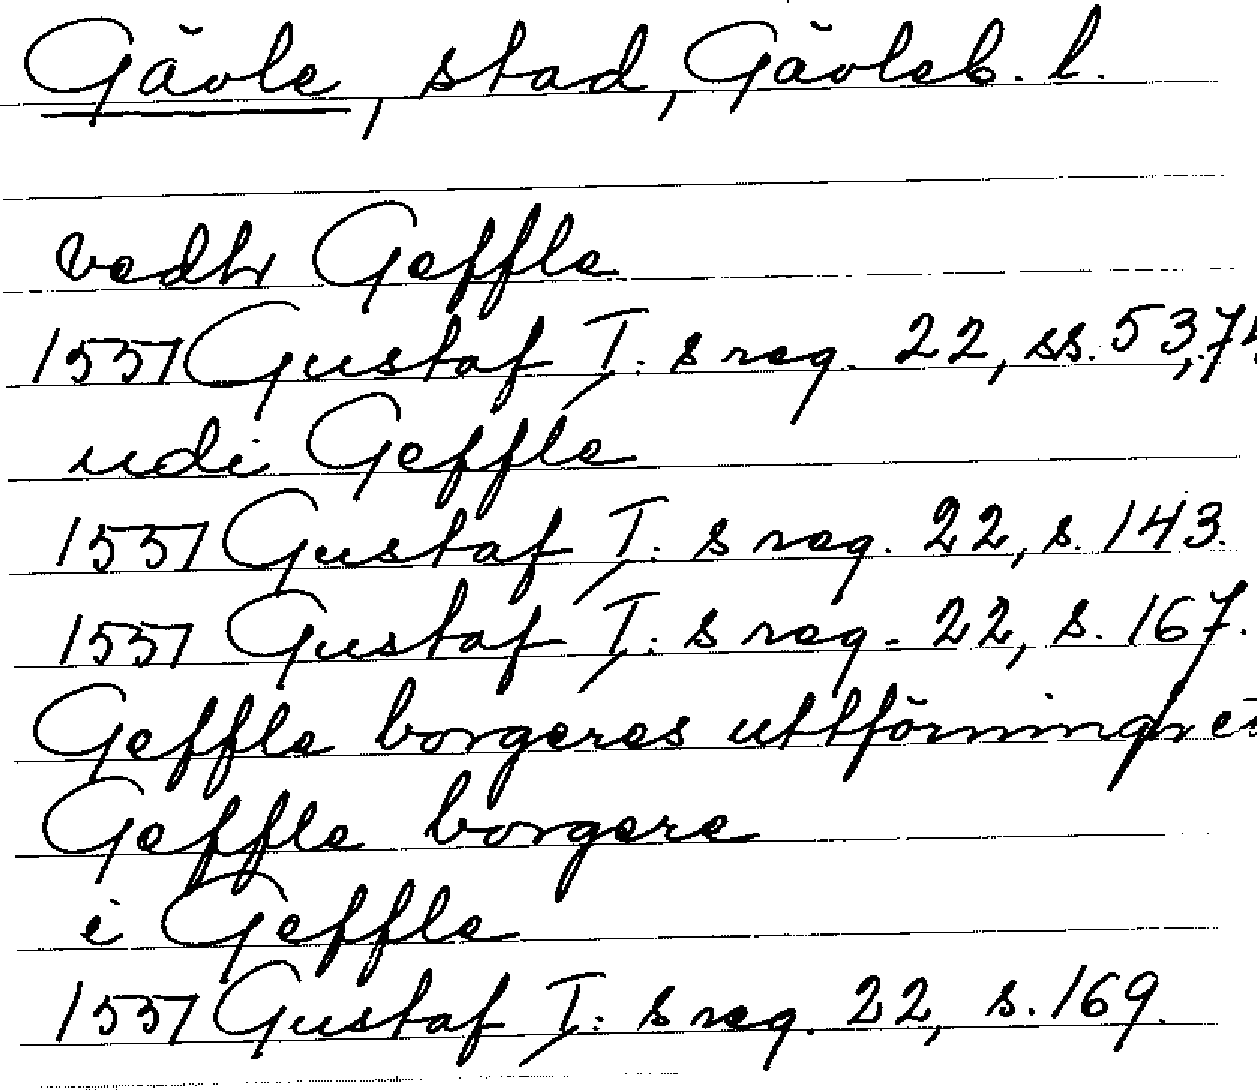 Gävle, stad, Gävleb. l.
vedh Geffle
1551 Gustaf I:s reg. 22, ss. 53,74
udi Geffle
1551 Gustaf I:s reg. 22, s. 143.
1551 Gustaf I:s reg. 22, s. 167.
Geffle borgeres uttförninghes
Geffle borgere
i Geffle
1551 Gustaf I:s reg. 22, s. 169.